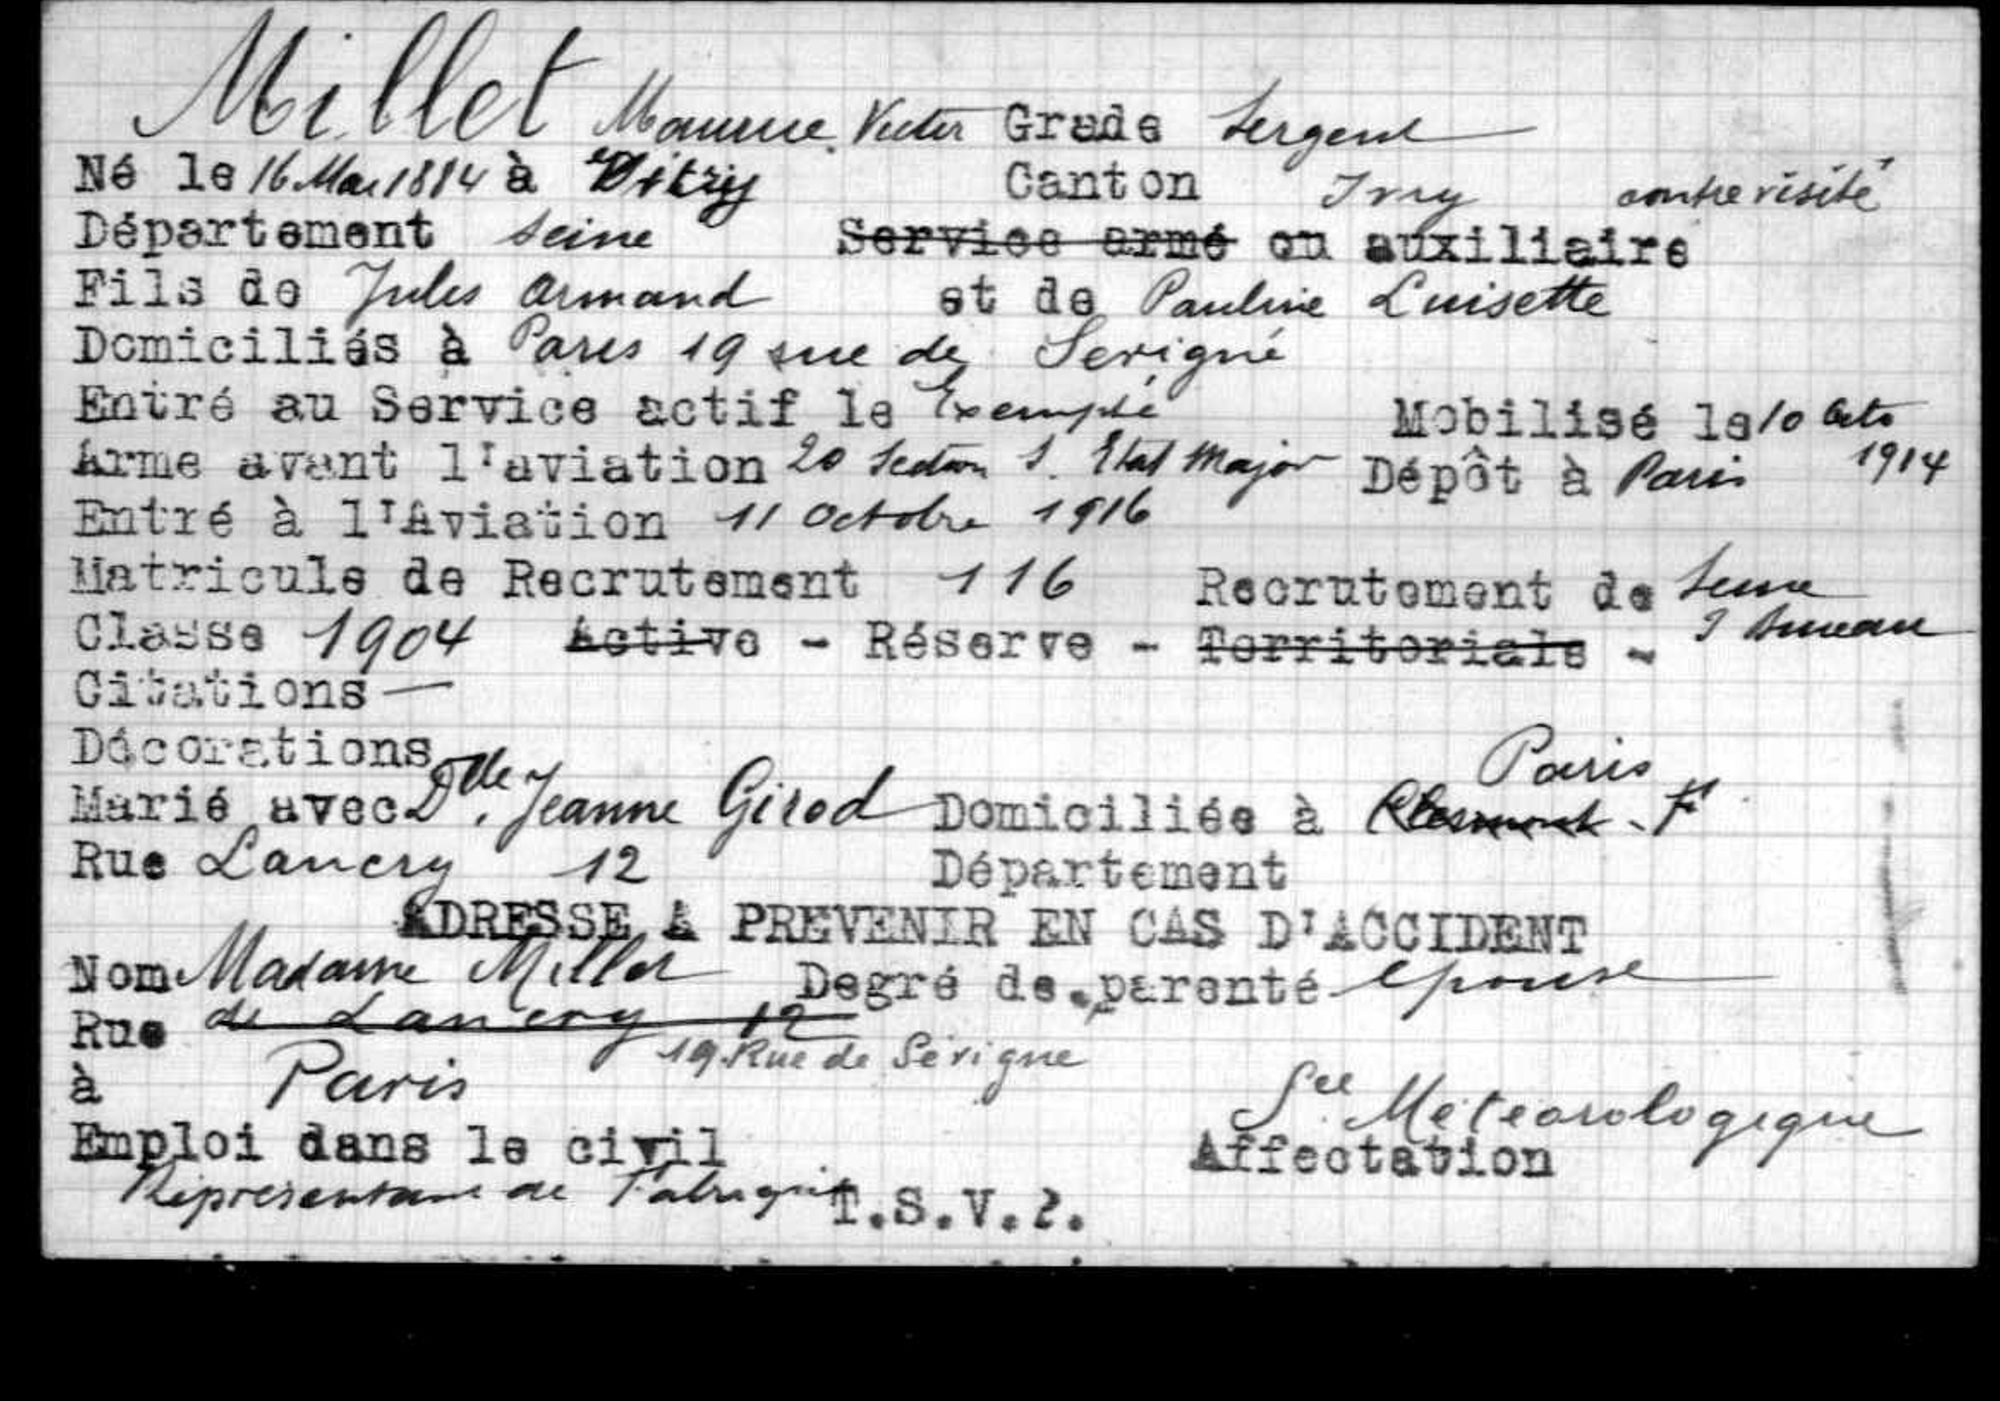 Millet Maurice Victor Grade Sergent
Né le 16 Mai 1884 à Vitry Canton Ivry contre visité
Département Seine ~~Service armé~~ ou auxiliaire
Fils de Jules Armand et de Pauline Luisette
Domiciliés à Paris 19 rue de Sevigné
Entré au Service actif le Exempté Mobilisé le 10 Octo 1914
Arme avant l'aviation 20 Section S. Etat Major Dépôt à Paris
Entré à l'Aviation 11 Octobre 1916
Matricule de Recrutement 116 Recrutement de Seine
Classe 1904 ~~Active~~ - Réserve - ~~Territoriale~~ - Bureau
Citations —
Décorations
Marié avec Dlle. Jeanne Girod Domiciliée à Paris
Rue Lancry 12 Département
ADRESSE A PREVENIR EN CAS D'ACCIDENT
Nom Madame Millet Degré de parenté épouse
Rue ~~de Lancry 12~~ 19 Rue de Sévigné
à Paris
Sce Météorologique
Emploi dans le civil Affectation
Représentant de Fabriques T.S.V.P.